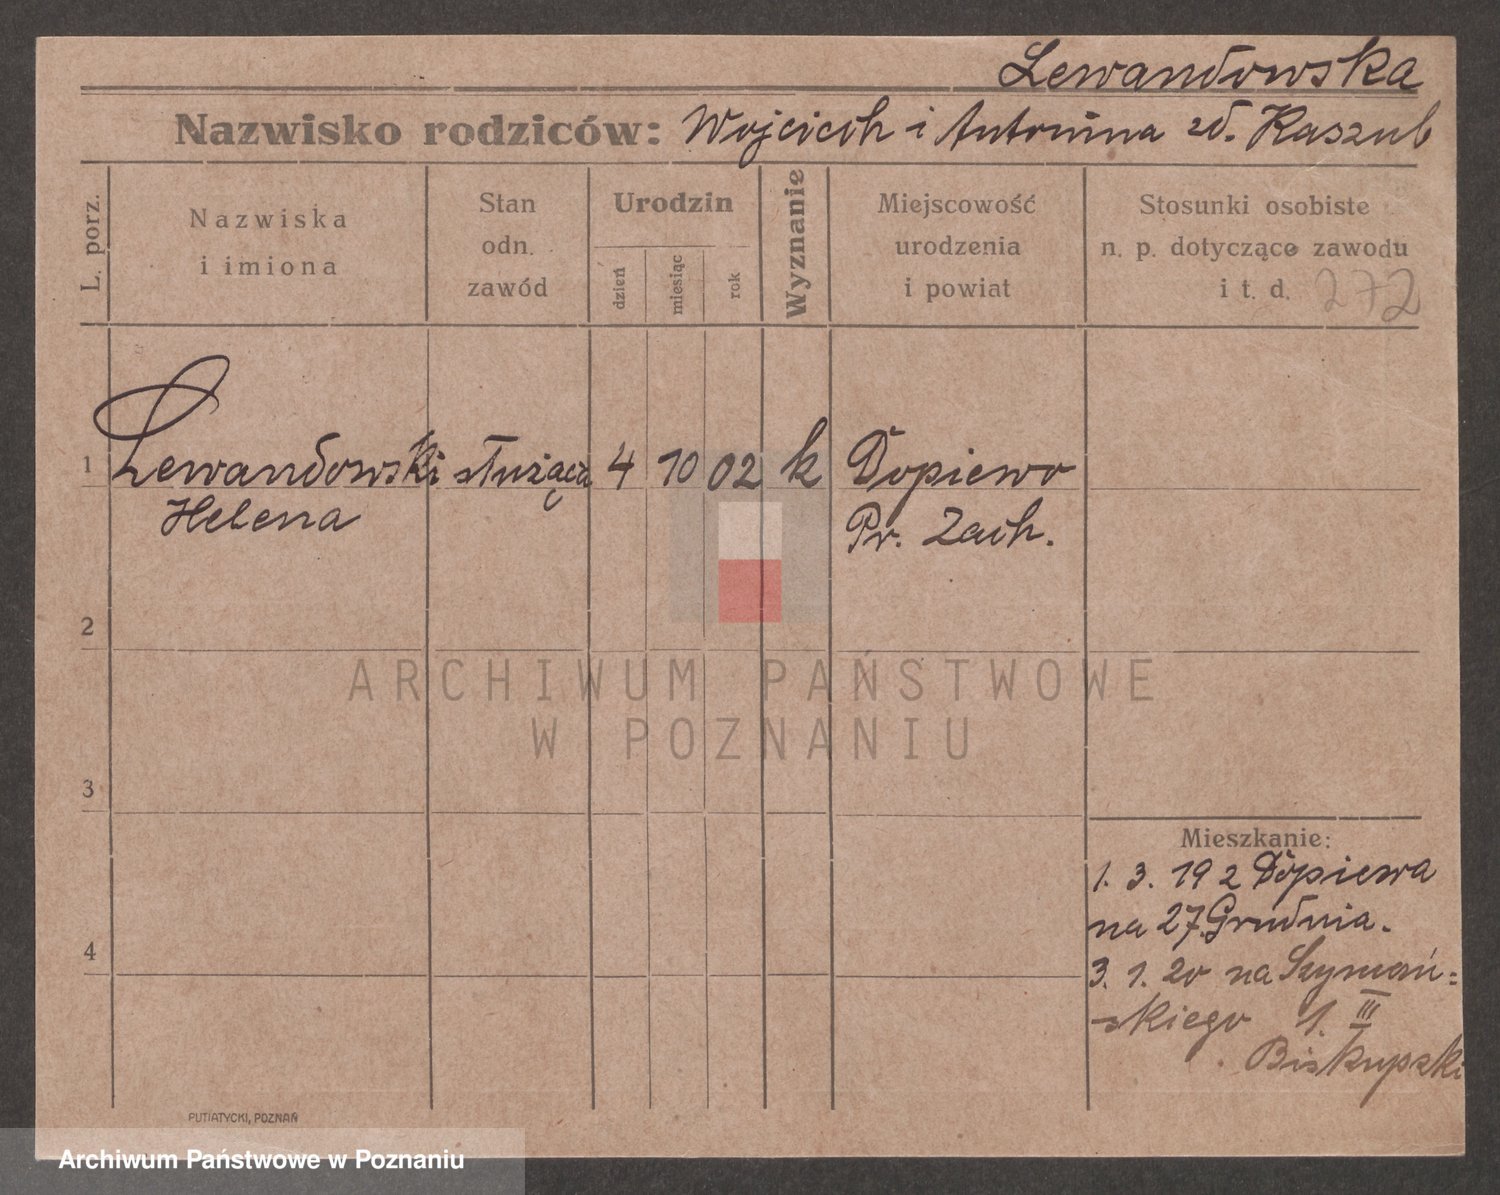 Lewandowska
Nazwisko rodziców: Wojciech i Antonina zd. Kaszub
L. porz.
Nazwiska
i imiona
Stan
odn.
zawód
Urodzin
dzień
miesiąc
rok
Wyznanie
Miejscowość
urodzenia
i powiat
Stosunki osobiste
n. p. dotyczące zawodu
i t. d. 272
1 Lewandowski służąca 4 10 02 k Dopiewo
Helena Pr. Zach.
2
ARCHIWUM PAŃSTWOWE
W POZNANIU
3
Mieszkanie:
1. 3. 19 z Dopiewa
na 27. Grudnia.
4
3. 1. 20 na Szymań=
skiego 1. III
Biskupski
PUTIATYCKI, POZNAŃ
Archiwum Państwowe w Poznaniu